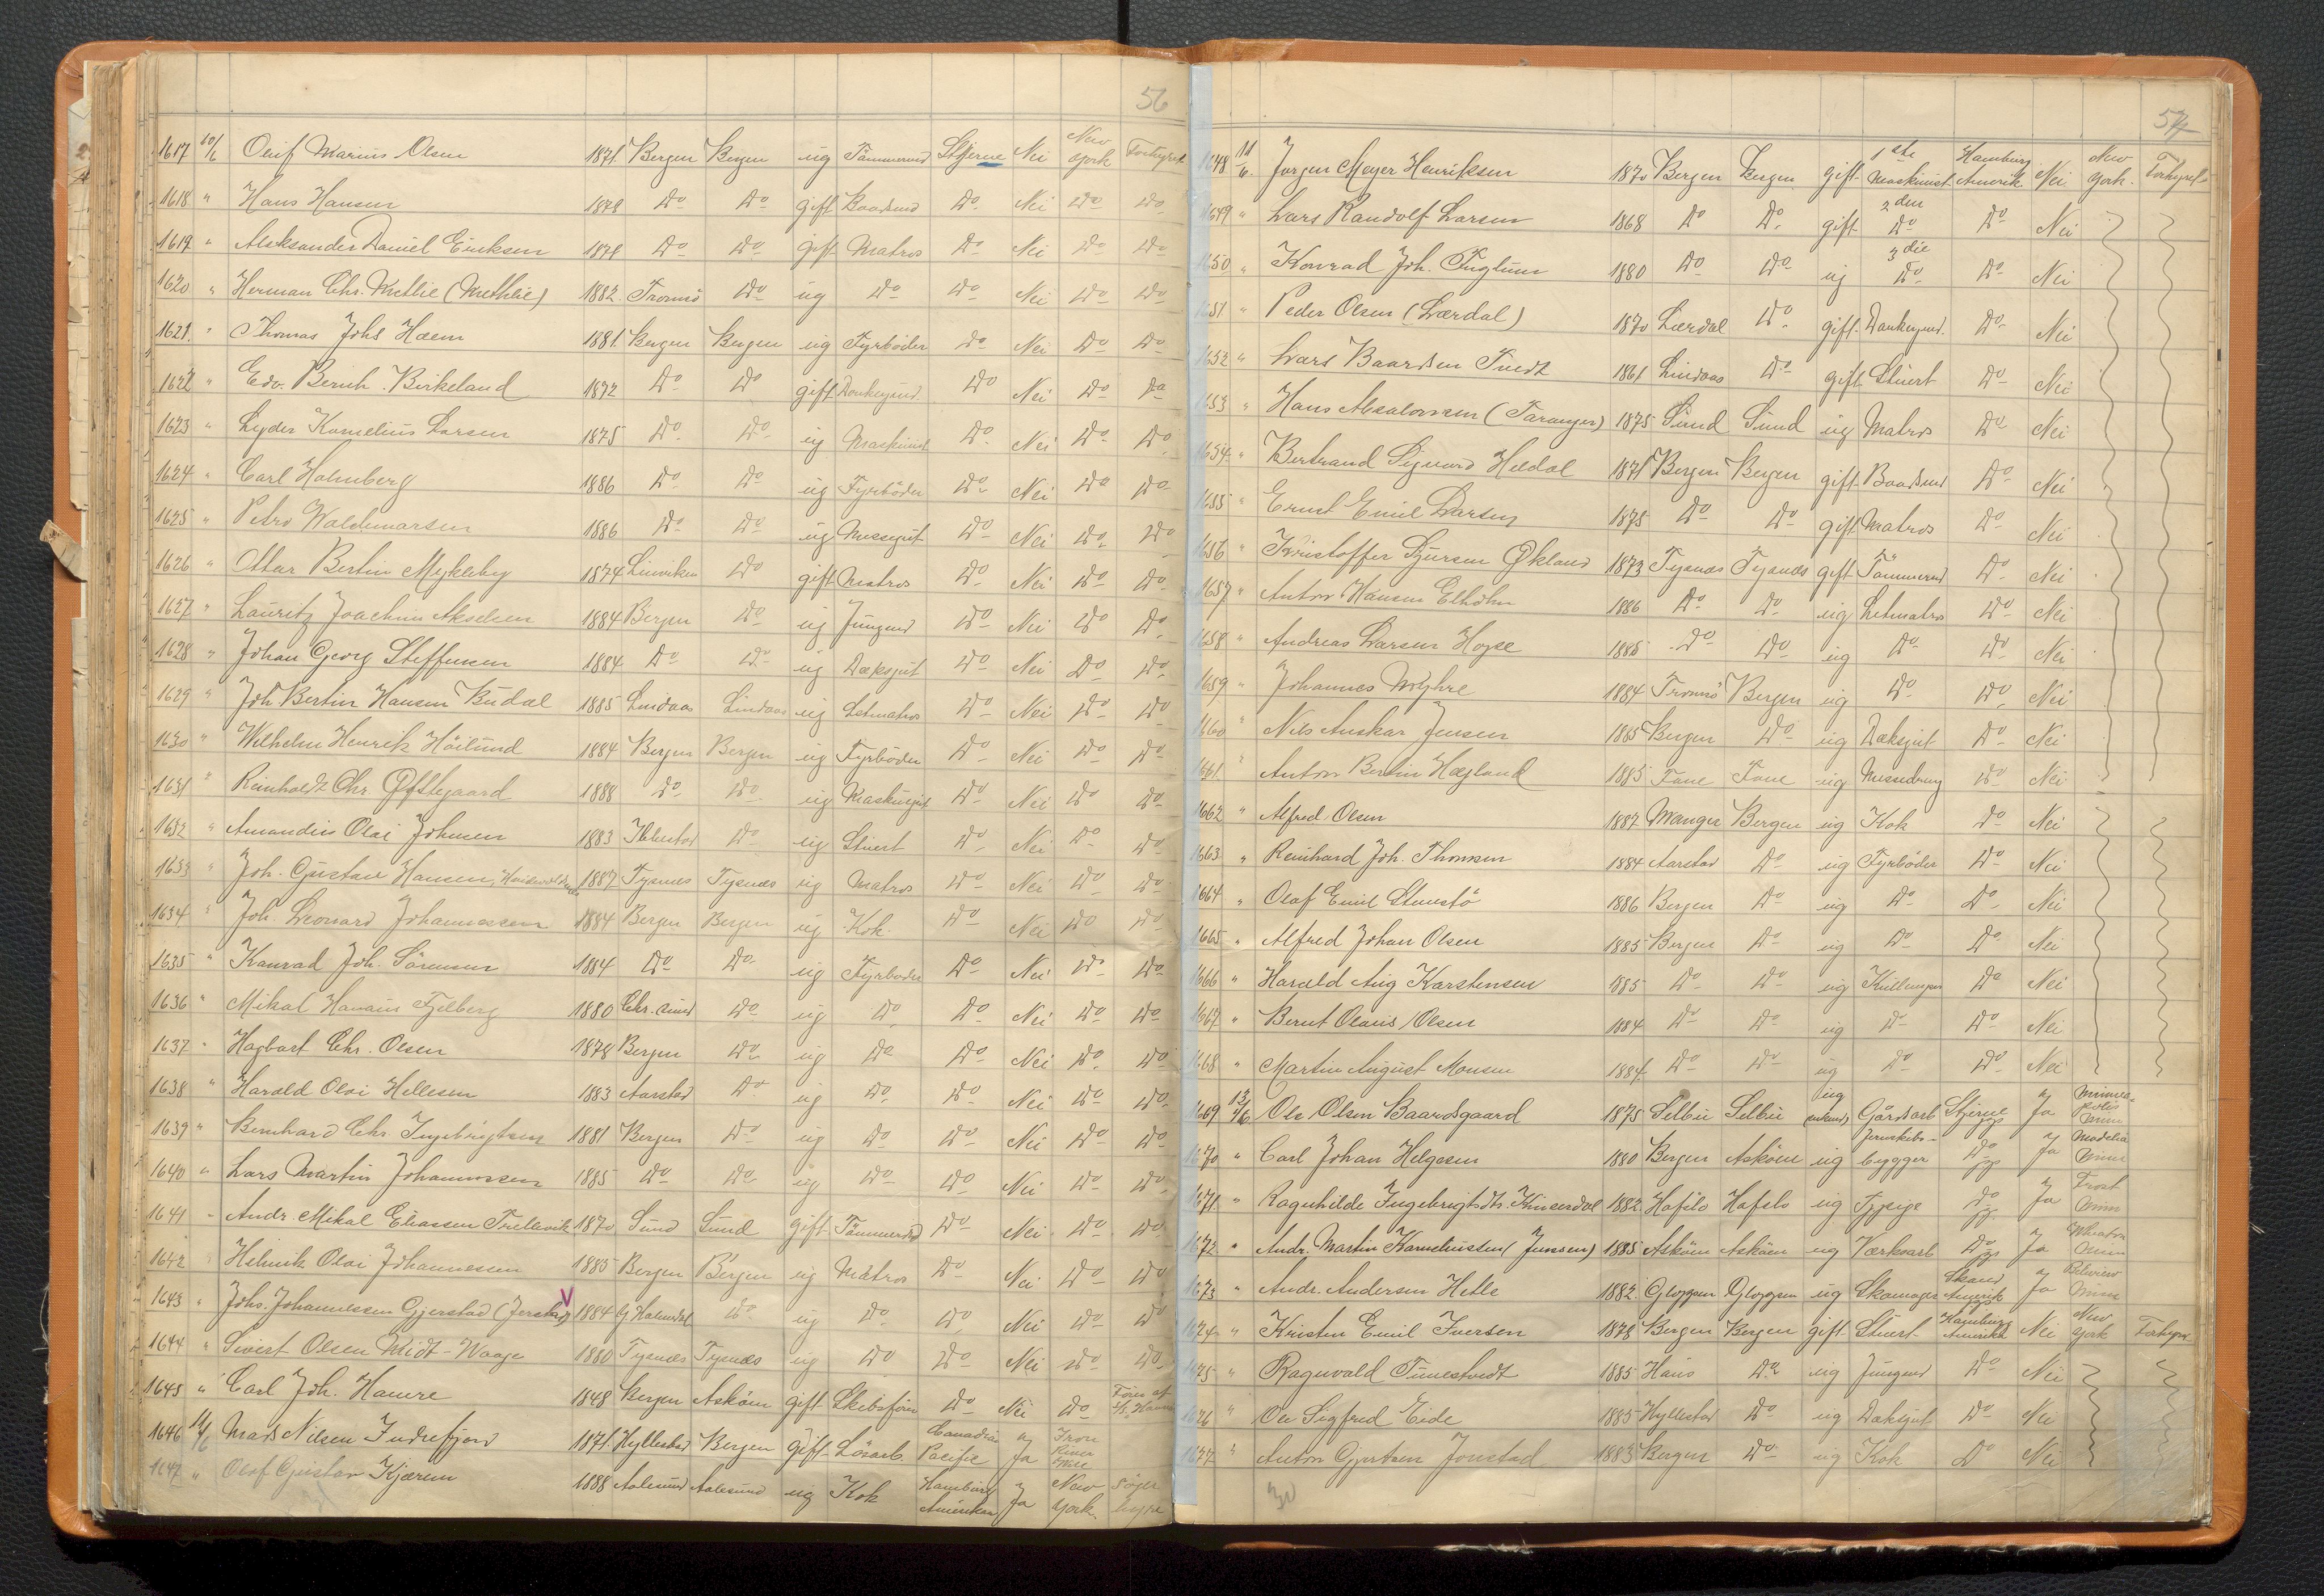 56
1617 10/6 Oluf Marius Olsen 1871 Bergen Bergen ug Tömmermd Stjerne Nei New York Forhyret
1618 " Hans Hansen 1878 Do Do gift Baadsmd Do Nei Do Do
1619 " Aleksander Daniel Eriksen 1878 Do Do gift Matros Do Nei Do Do
1620 " Herman Chr. Methlie (Methlie) 1882 Tromsö Do ug Do Do Nei Do Do
1621 " Thomas Johs Haem 1881 Bergen Bergen ug Fyrböder Do Nei Do Do
1622 " Edv. Bernh. Birkeland 1872 Do Do gift Donkeymd. Do Nei Do Do
1623 " Lyder Kornelius Larsen 1875 Do Do ug Maskinist Do Nei Do Do
1624 " Carl Holmberg 1886 Do Do ug Fyrböder Do Nei Do Do
1625 " Petro Waldemarsen 1886 Do Do ug Messegut Do Nei Do Do
1626 " Ottar Bertin Mykleby 1874 Do gift Matros Do Nei Do Do
1627 " Lauritz Joachim Akselsen 1884 Bergen Do ug Jungmd Do Nei Do Do
1628 " Johan Georg Steffensen 1884 Do Do ug Dæksgut Do Nei Do Do
1629 " Joh Bertin Hansen Budal 1885 Lindaas Lindaas ug Letmatros Do Nei Do Do
1630 " Wilhelm Henrik Höilund 1884 Bergen Bergen ug Fyrböder Do Nei Do Do
1631 " Reinholdt Chr Øftegaard 1888 Do Do ug Maskingut Do Nei Do Do
1632 " Amandus Olai Johnsen 1883 Do ug Stuert Do Nei Do Do
1633 " Joh. Gustav Hansen, 1887 Tysnes Tysnæs ug Matros Do Nei Do Do
1634 " Joh. Leonard Johannesen 1884 Bergen Bergen ug Kok Do Nei Do Do
1635 " Konrad Joh. Sörensen 1884 Do Do ug Fyrböder Do Nei Do Do
1636 " Mikal Fjelberg 1880 Chr. sund Do ug Do Do Nei Do Do
1637 " Hagbart Chr. Olsen 1878 Bergen Do ug Do Do Nei Do Do
1638 " Harald Olai Hellesen 1883 Aarstad Do ug Do Do Nei Do Do
1639 " Bernhard Chr. Ingebrigtsen 1881 Bergen Do ug Do Do Nei Do Do
1640 " Lars Martin Johannessen 1885 Do Do ug Do Do Nei Do Do
1641 " Andr. Mikal Eliassen Trellevik 1870 Sund Sund gift Tömmermd Do Nei Do Do
1642 " Helmik Olai Johannesen 1885 Bergen Bergen ug Matros Do Nei Do Do
1643 " Johs. Johannessen Gjerstad (Jerstad) V 1884 Do ug Do Do Nei Do Do
1644 " Sivert Olsen Midt-Waage 1880 Tysnæs Tysnæs ug Do Do Nei Do Do
1645 " Carl Joh. Hamre 1848 Bergen Asköen gift Skibsförer Do Nei Do Förer af
1646 11/6 Mads Nilsen Indrefjord 1871 Hyllestad Bergen gift Lösarb. Canadian Pacific Ja Iron River
1647 " Olof Gustav Kjærem 1888 Aalesund Aalesund ug Kok Hamburg Amerikan Ja New York Söger hyre
57
1648 11/6 Jørgen Meyer Henriksen 1870 Bergen Bergen gift 1ste Maskinist Hamburg Amerik. Nei New York Forhyret
1649 " Lars Randolf Larsen 1868 Do Do gift 2den Do Do Nei
1650 " Konrad Joh. Fuglum 1880 Do Do ug 3die Do Do Nei
1651 " Peder Olsen (Lærdal) 1870 Lærdal Do gift Donkeymd. Do Nei
1652 " Lars Baardsen Tvedt 1861 Lindaas Do gift Stuert Do Nei
1653 " Hans Absalonsen (Taranger) 1875 Sund Sund ug Matros Do Nei
1654 " Bertrand Sigurd Heldal 1871 Bergen Bergen gift Baadsmd Do Nei
1655 " Ernst Emil Larsen 1875 Do Do gift Matros Do Nei
1656 " Kristoffer Sjursen Økland 1873 Tysnæs Tysnæs gift Tömmermd Do Nei
1657 " Anton Hansen Elholm 1886 Do Do ug Letmatros Do Nei
1658 " Andreas Larsen 1885 Do Do ug Do Do Nei
1659 " Johannes Myhre 1884 Tromsö Bergen ug Do Do Nei
1660 " Nils Anskar Jensen 1885 Bergen Do ug Dæksgut Do Nei
1661 " Anton Bertin Hægland 1885 Fane Fane ug Messedreng Do Nei
1662 " Alfred Olsen 1887 Manger Bergen ug Kok Do Nei
1663 " Reinhard Joh. Thomsen 1884 Aarstad Do ug Fyrböder Do Nei
1664 " Olaf Emil Stensö 1886 Bergen Do ug Do Do Nei
1665 " Alfred Johan Olsen 1885 Bergen Do ug Do Do Nei
1666 " Harald Aug Karstensen 1885 Do Do ug Kullemper Do Nei
1667 " Bernt Olaus Olsen 1884 Do Do ug Do Do Nei
1668 " Martin August Monsen 1884 Do Do ug Do Do Nei
1669 13/6 Ole Olsen Baardsgaard 1875 Selbu Selbu ug (enkem) Gårdsarb Stjerne Ja Minneapolis Minn
1670 " Carl Johan Helgesen 1880 Bergen Asköen ug Jernskibsbygger Do Ja Madelia Minn
1671 " Ragnhilde Ingebrigtsdtr. Kinserdal 1882 Hafslo Hafslo ug Tjpige Do Ja Frost Minn
1672 " Andr. Martin Korneliussen (Jenssen) 1885 Asköen Asköen ug Værksarb Do Ja Wheaton Minn
1673 " Andr. Andersen Hetle 1882 Gloppen Gloppen ug Skomager Skand Amerik Ja Belview Minn
1674 " Kristen Emil Iversen 1878 Bergen Bergen gift Stuert Hamburg Amerika Nei New York Forhyret
1675 " Ragnvald Tunestvedt 1885 Haus Do ug Jungmd Do Nei
1676 " Ole Sigfred Eide 1885 Hyllestad Do ug Dæksgut Do Nei
1677 " Anton Gjertsen Jonstad 1883 Bergen Do ug Kok Do Nei
30